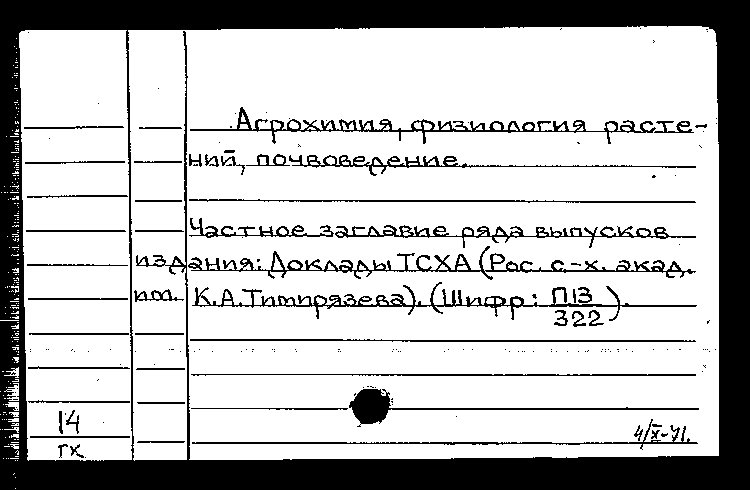 Агрохимия, физиология расте-
ний, почвоведение.
Частное заглавие ряда выпусков
издания: Доклады ТСХА (Рос. с.-х. акад.
им. К.А.Тимирязева). (Шифр: П13/322).
14
гк
4/X-71.